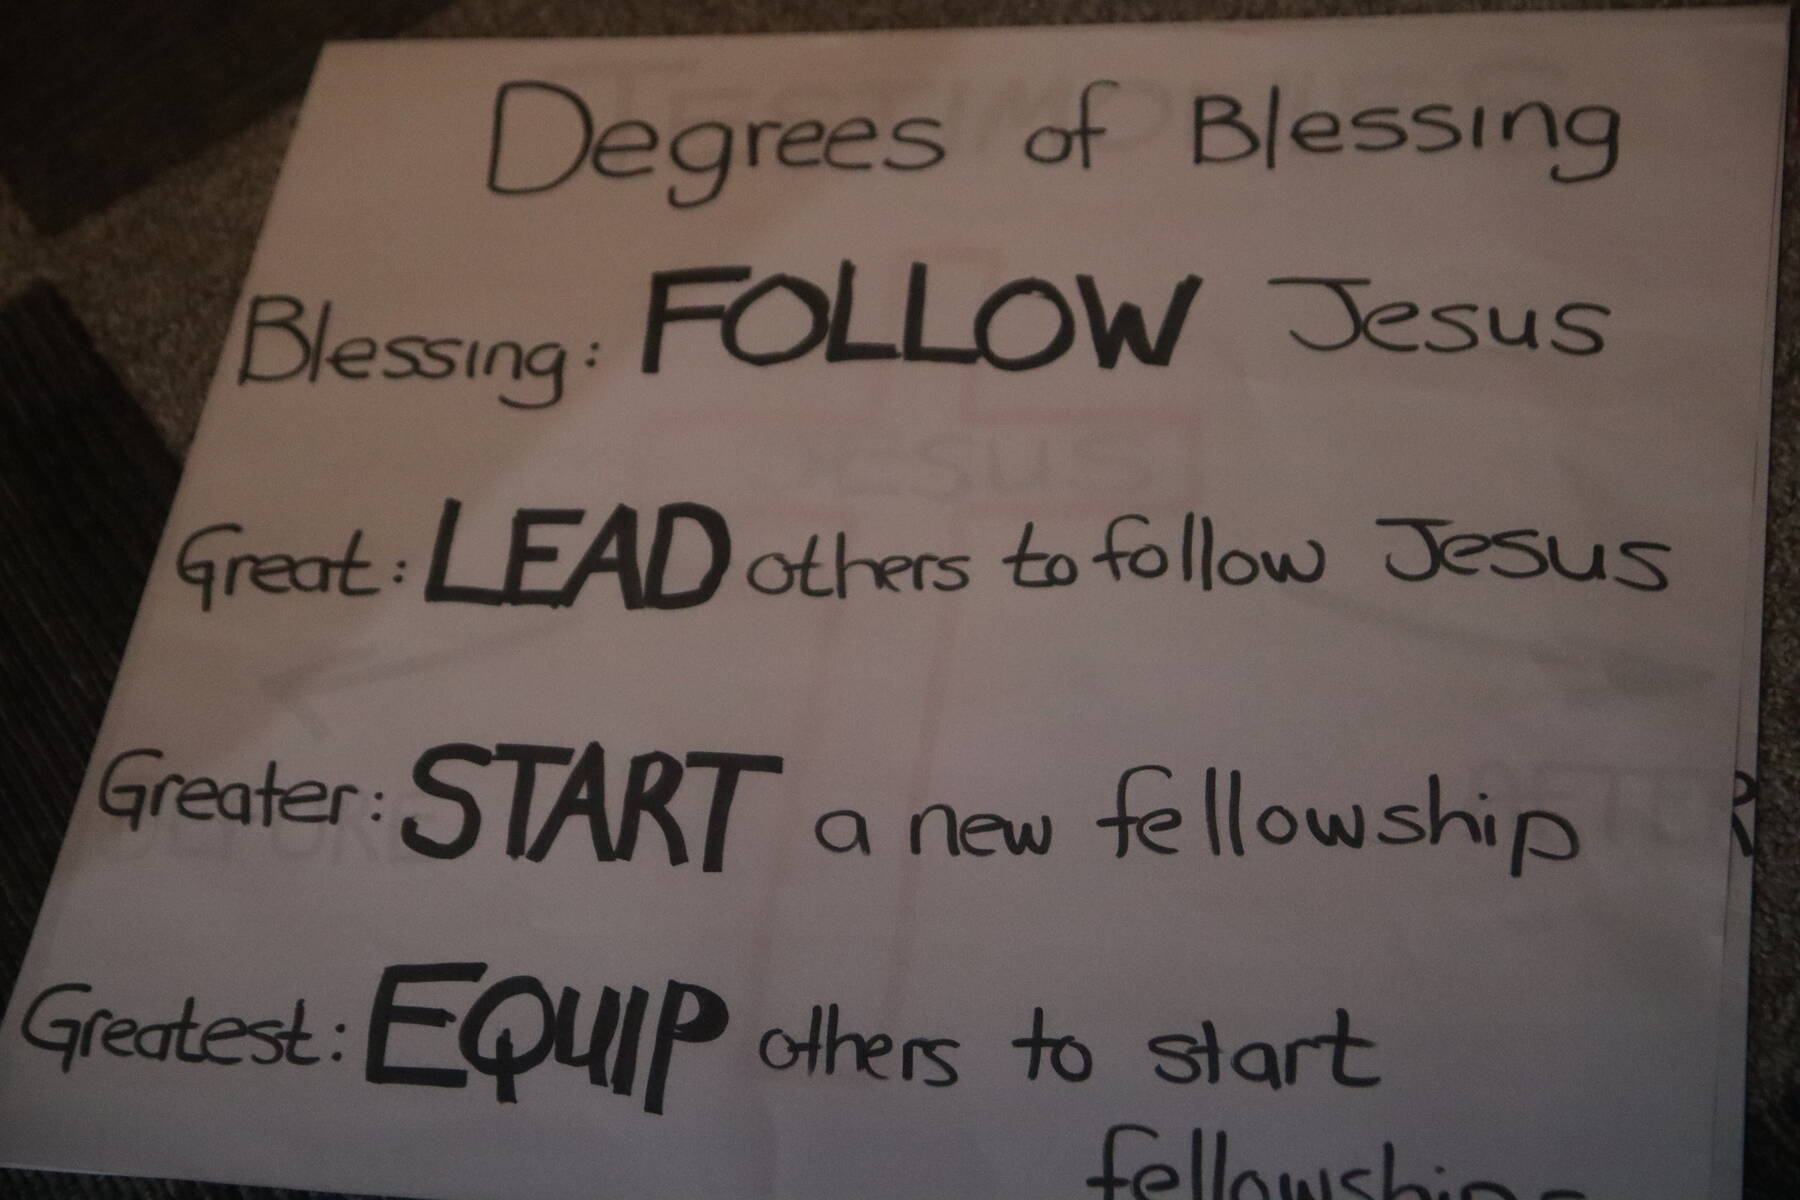 Degrees of Blessing
Blessing: FOLLOW Jesus
Great: LEAD others to follow Jesus
Greater: START a new fellowship
Greatest: EQUIP others to start
fellowships